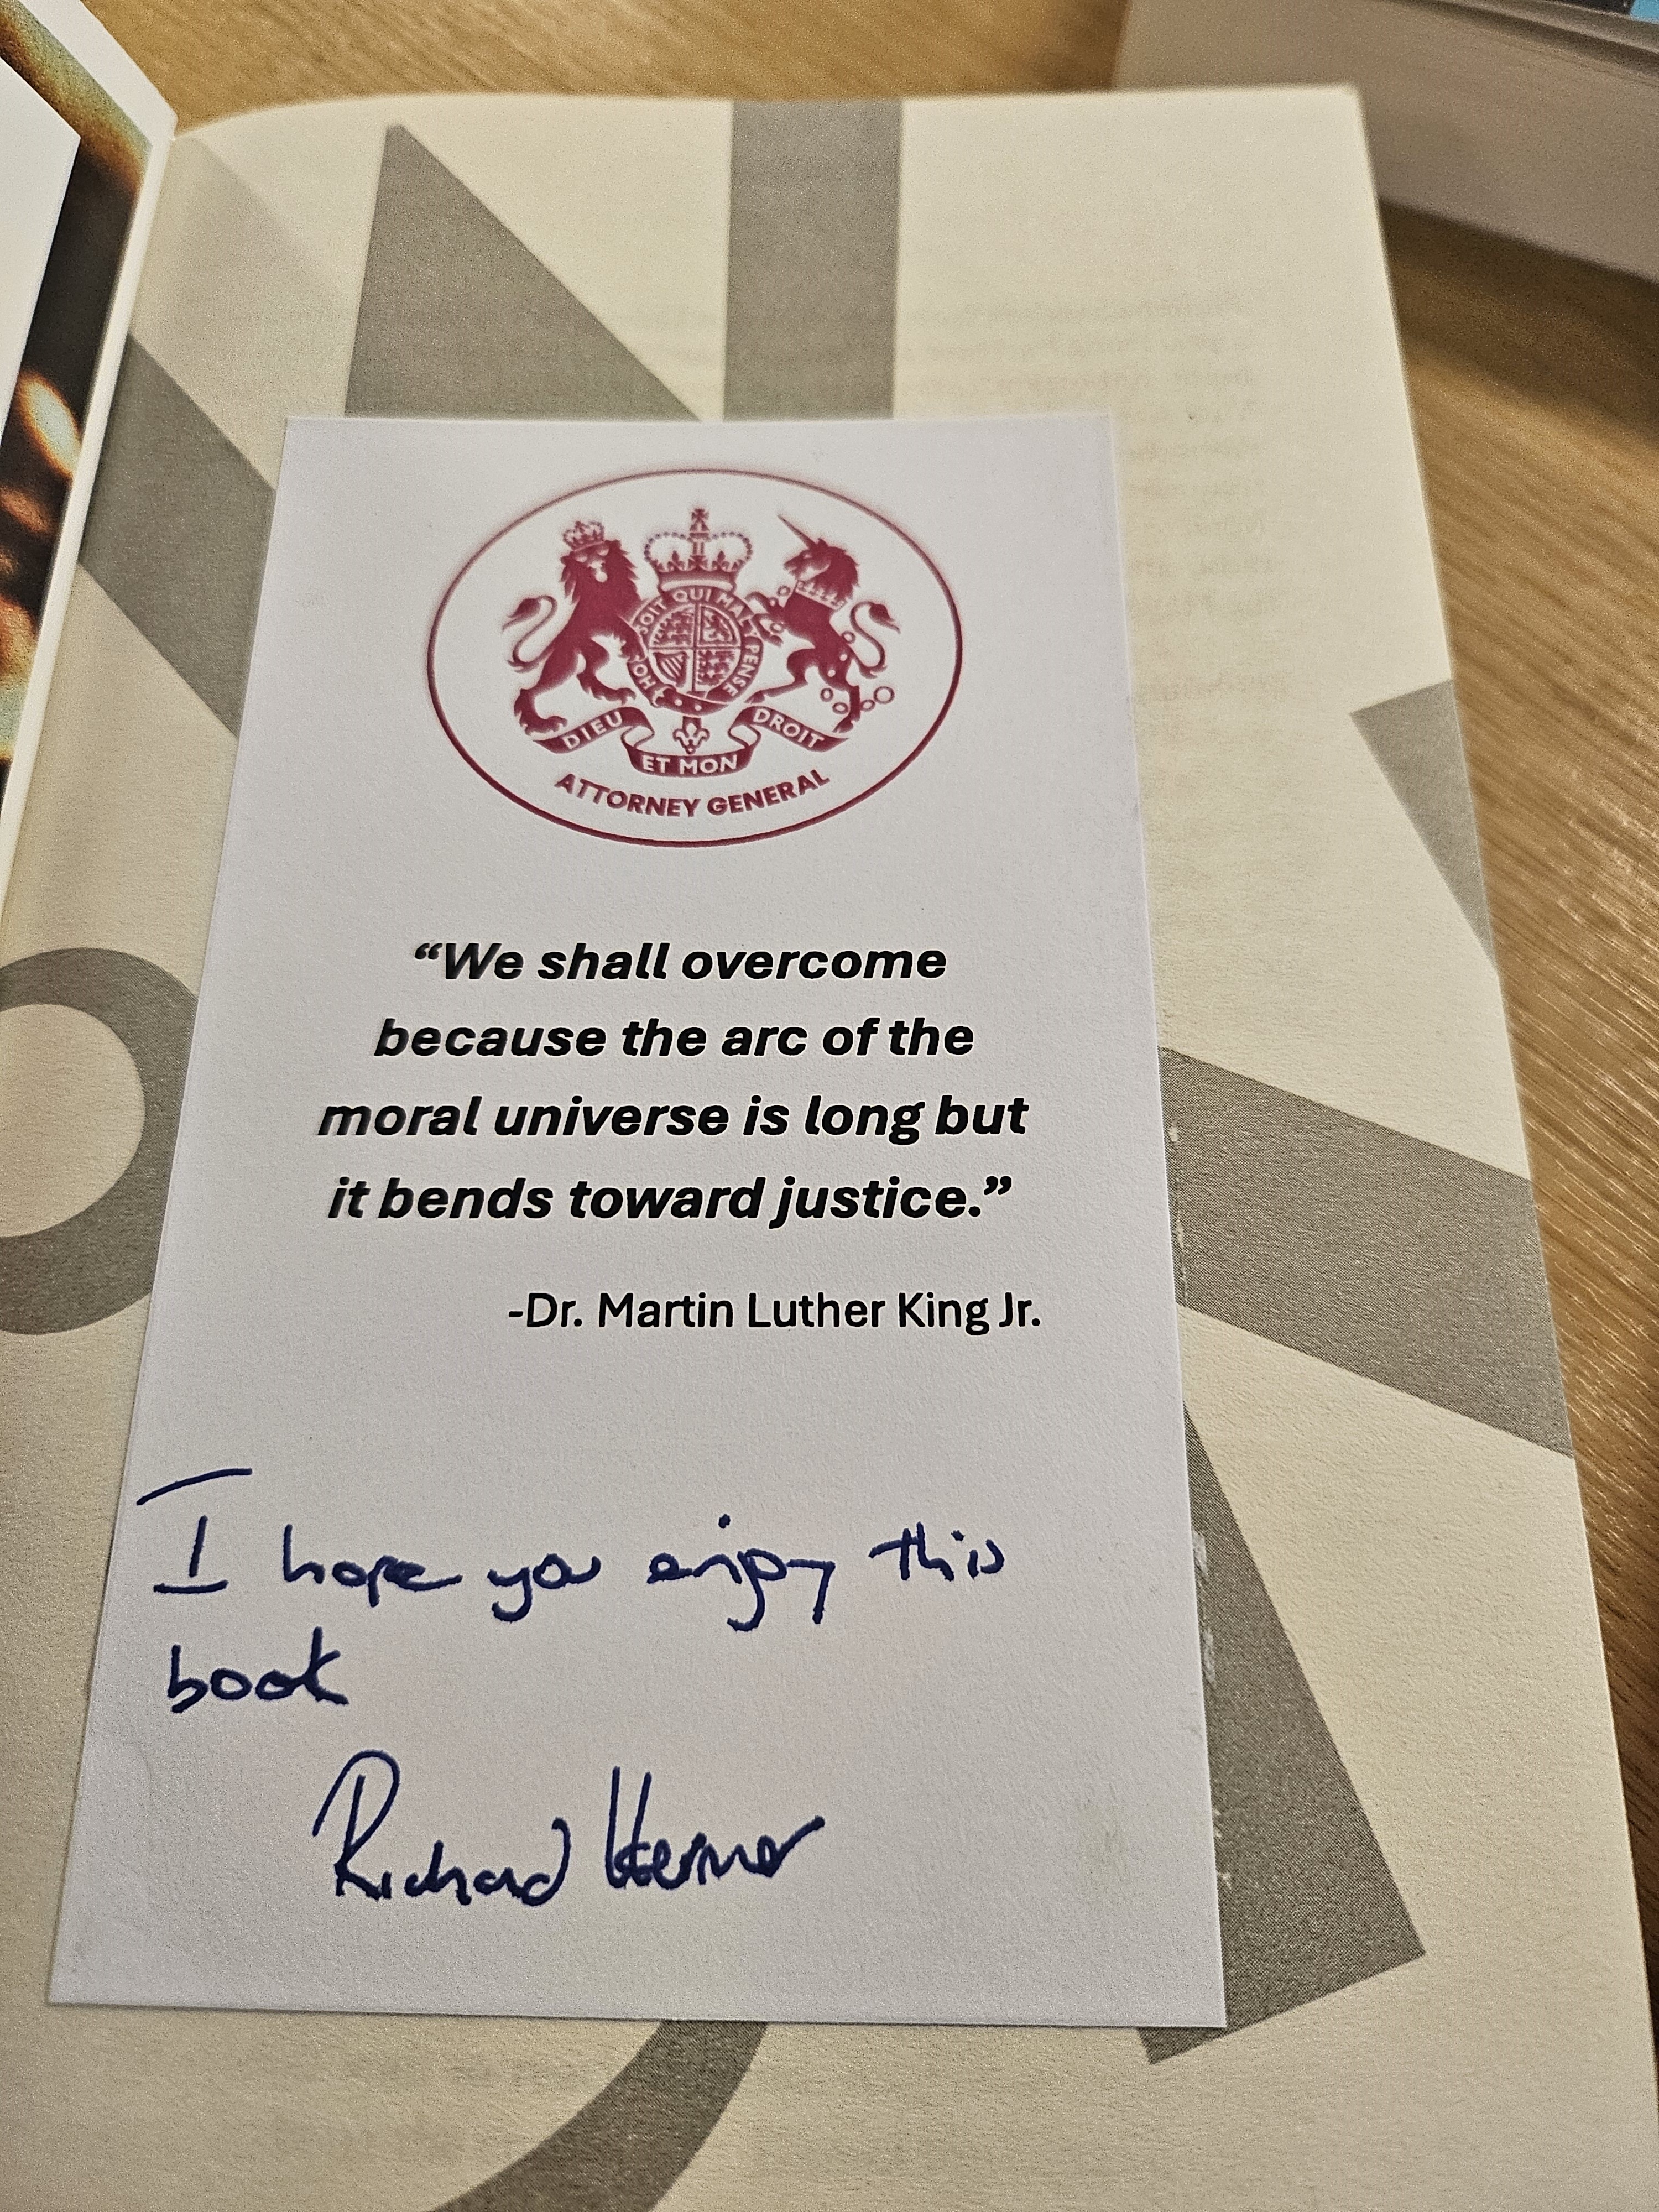 HONI SOIT QUI MAL Y PENSE
DIEU ET MON DROIT
ATTORNEY GENERAL
“We shall overcome
because the arc of the
moral universe is long but
it bends toward justice.”
-Dr. Martin Luther King Jr.
I hope you enjoy this
book
Richard Hermer